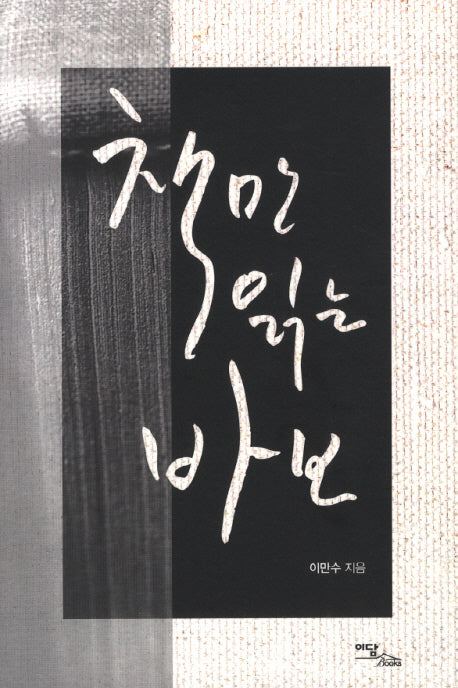 책만
읽는
바보
이만수 지음
이담
Books